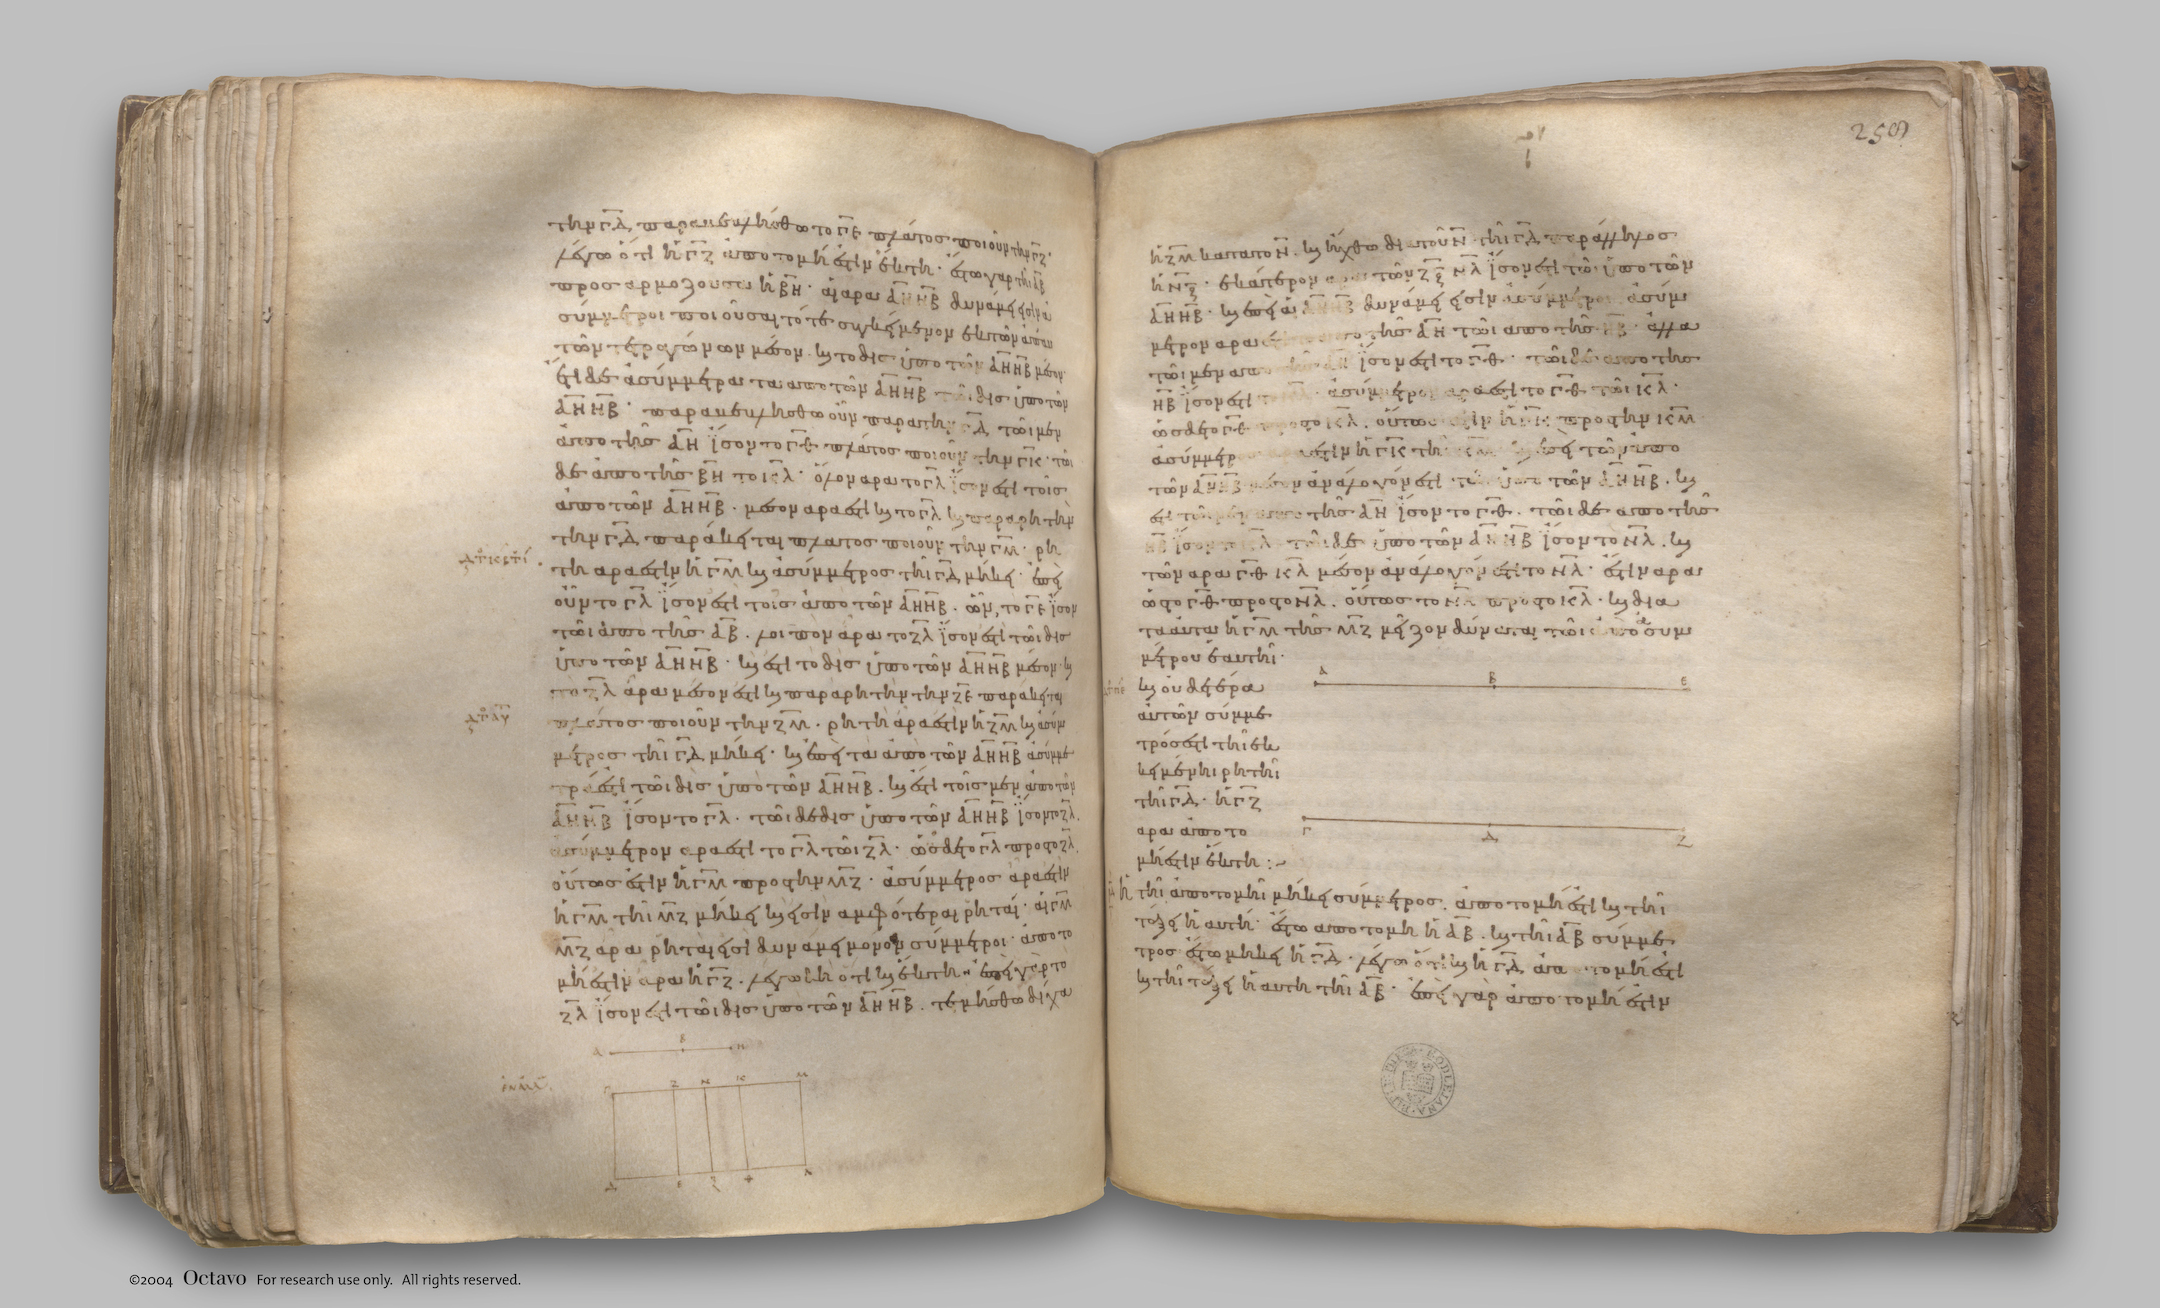 τὴν ΓΔ παραβεβλήσθω τὸ ΓΕ πλάτος ποιοῦν τὴν ΓΖ·
λέγω ὅτι ἡ ΓΖ ἀποτομή ἐστιν ἕκτη· ἔστω γὰρ τῆι ΑΒ
προσαρμόζουσα ἡ ΒΗ· αἱ ἄρα ΑΗ ΗΒ δυνάμει εἰσὶν ἀ
σύμμετροι ποιοῦσαι τό τε συγκείμενον ἐκ τῶν ἀπ' αὐ
τῶν τετραγώνων μέσον· καὶ τὸ δὶς ὑπὸ τῶν ΑΗ ΗΒ μέσον·
ἔτι δὲ ἀσύμμετρα τὰ ἀπὸ τῶν ΑΗ ΗΒ τῶι δὶς ὑπὸ τῶν
ΑΗ ΗΒ· παραβεβλήσθω οὖν παρὰ τὴν ΓΔ τῶι μὲν
ἀπὸ τῆς ΑΗ ἴσον τὸ ΓΘ πλάτος ποιοῦν τὴν ΓΚ· τῶι
δὲ ἀπὸ τῆς ΒΗ τὸ ΚΛ· ὅλον ἄρα τὸ ΓΛ ἴσον ἐστὶ τοῖς
ἀπὸ τῶν ΑΗ ΗΒ· μέσον ἄρα ἐστὶ καὶ τὸ ΓΛ καὶ παρὰ ῥητὴν
τὴν ΓΔ παράκειται πλάτος ποιοῦν τὴν ΓΜ· ῥη
τὴ ἄρα ἐστὶν ἡ ΓΜ καὶ ἀσύμμετρος τῆι ΓΔ μήκει· ἐπεὶ
οὖν τὸ ΓΛ ἴσον ἐστὶ τοῖς ἀπὸ τῶν ΑΗ ΗΒ· ὧν τὸ ΓΕ ἴσον
τῶι ἀπὸ τῆς ΑΒ· λοιπὸν ἄρα τὸ ΖΛ ἴσον ἐστὶ τῶι δὶς
ὑπὸ τῶν ΑΗ ΗΒ· καί ἐστι τὸ δὶς ὑπὸ τῶν ΑΗ ΗΒ μέσον· καὶ
τὸ ΖΛ ἄρα μέσον ἐστὶ καὶ παρὰ ῥητὴν τὴν ΖΕ παράκειται
πλάτος ποιοῦν τὴν ΖΜ· ῥητὴ ἄρα ἐστὶν ἡ ΖΜ καὶ ἀσύμ
μετρος τῆι ΓΔ μήκει· καὶ ἐπεὶ τὰ ἀπὸ τῶν ΑΗ ΗΒ ἀσύμμε
τρά ἐστι τῶι δὶς ὑπὸ τῶν ΑΗ ΗΒ· καί ἐστι τοῖς μὲν ἀπὸ τῶν
ΑΗ ΗΒ ἴσον τὸ ΓΛ· τῶι δὲ δὶς ὑπὸ τῶν ΑΗ ΗΒ ἴσον τὸ ΖΛ·
ἀσύμμετρον ἄρα ἐστὶ τὸ ΓΛ τῶι ΖΛ· ὡς δὲ τὸ ΓΛ πρὸς τὸ ΖΛ·
οὕτως ἐστὶν ἡ ΓΜ πρὸς τὴν ΜΖ· ἀσύμμετρος ἄρα ἐστὶν
ἡ ΓΜ τῆι ΜΖ μήκει καί εἰσιν ἀμφότεραι ῥηταί· αἱ ΓΜ
ΜΖ ἄρα ῥηταί εἰσι δυνάμει μόνον σύμμετροι· ἀποτο
μή ἐστιν ἄρα ἡ ΓΖ· λέγω δὴ ὅτι καὶ ἕκτη· ἐπεὶ γὰρ τὸ
ΖΛ ἴσον ἐστὶ τῶι δὶς ὑπὸ τῶν ΑΗ ΗΒ· τετμήσθω δίχα
Α Β Η
Γ Ζ Ν Κ Μ
Δ Ε Ξ Θ Λ
259
ἡ ΖΜ κατὰ τὸ Ν· καὶ ἤχθω διὰ τοῦ Ν τῆι ΓΔ παράλληλος
ἡ ΝΞ· ἑκάτερον ἄρα τῶν ΖΞ ΝΛ ἴσον ἐστὶ τῶι ὑπὸ τῶν
ΑΗ ΗΒ· καὶ ἐπεὶ αἱ ΑΗ ΗΒ δυνάμει εἰσὶν ἀσύμμετροι ἀσύμ
μετρον ἄρα ἐστὶ τὸ ἀπὸ τῆς ΑΗ τῶι ἀπὸ τῆς ΗΒ· ἀλλὰ
τῶι μὲν ἀπὸ τῆς ΑΗ ἴσον ἐστὶ τὸ ΓΘ· τῶι δὲ ἀπὸ τῆς
ΗΒ ἴσον ἐστὶ τὸ ΚΛ· ἀσύμμετρον ἄρα ἐστὶ τὸ ΓΘ τῶι ΚΛ·
ὡς δὲ τὸ ΓΘ πρὸς τὸ ΚΛ· οὕτως ἐστὶν ἡ ΓΚ πρὸς τὴν ΚΜ
ἀσύμμετρος ἄρα ἐστὶν ἡ ΓΚ τῆι ΚΜ καὶ ἐπεὶ τῶν ἀπὸ
τῶν ΑΗ ΗΒ μέσον ἀνάλογόν ἐστι τὸ ὑπὸ τῶν ΑΗ ΗΒ· καί
ἐστι τῶι μὲν ἀπὸ τῆς ΑΗ ἴσον τὸ ΓΘ· τῶι δὲ ἀπὸ τῆς
ΗΒ ἴσον τὸ ΚΛ τῶι δὲ ὑπὸ τῶν ΑΗ ΗΒ ἴσον τὸ ΝΛ· καὶ
τῶν ἄρα ΓΘ ΚΛ μέσον ἀνάλογόν ἐστι τὸ ΝΛ· ἔστιν ἄρα
ὡς τὸ ΓΘ πρὸς τὸ ΝΛ· οὕτως τὸ ΝΛ πρὸς τὸ ΚΛ· καὶ διὰ
τὰ αὐτὰ ἡ ΓΜ τῆς ΜΖ μεῖζον δύναται τῶι ἀπὸ ἀσυμ
μέτρου ἑαυτῆι·
καὶ οὐδετέρα
αὐτῶν σύμμε
τρός ἐστι τῆι ἐκ
κειμένηι ῥητῆι
τῆι ΓΔ· ἡ ΓΖ
ἄρα ἀποτο
μή ἐστιν ἕκτη :~
Α Β Ε
Γ Δ Ζ
ἡ τῆι ἀποτομῆι μήκει σύμμετρος· ἀποτομή ἐστι καὶ τῆι
τάξει ἡ αὐτή· ἔστω ἀποτομὴ ἡ ΑΒ· καὶ τῆι ΑΒ σύμμε
τρος ἔστω μήκει ἡ ΓΔ· λέγω ὅτι καὶ ἡ ΓΔ ἀποτομή ἐστι
καὶ τῆι τάξει ἡ αὐτὴ τῆι ΑΒ· ἐπεὶ γὰρ ἀποτομή ἐστιν
©2004 Octavo For research use only. All rights reserved.